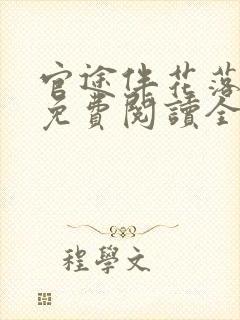 官途伴花落
免費閱讀全
程學文